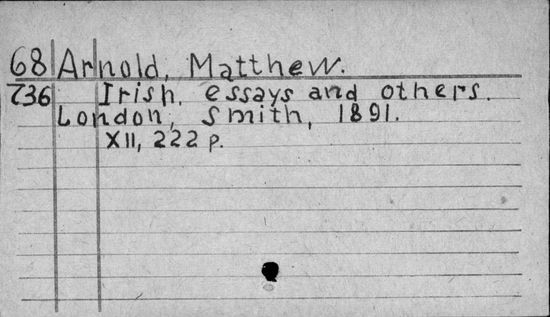 68 Arnold, Matthew.
736 Irish, essays and others.
London, Smith, 1891.
XII, 222 p.